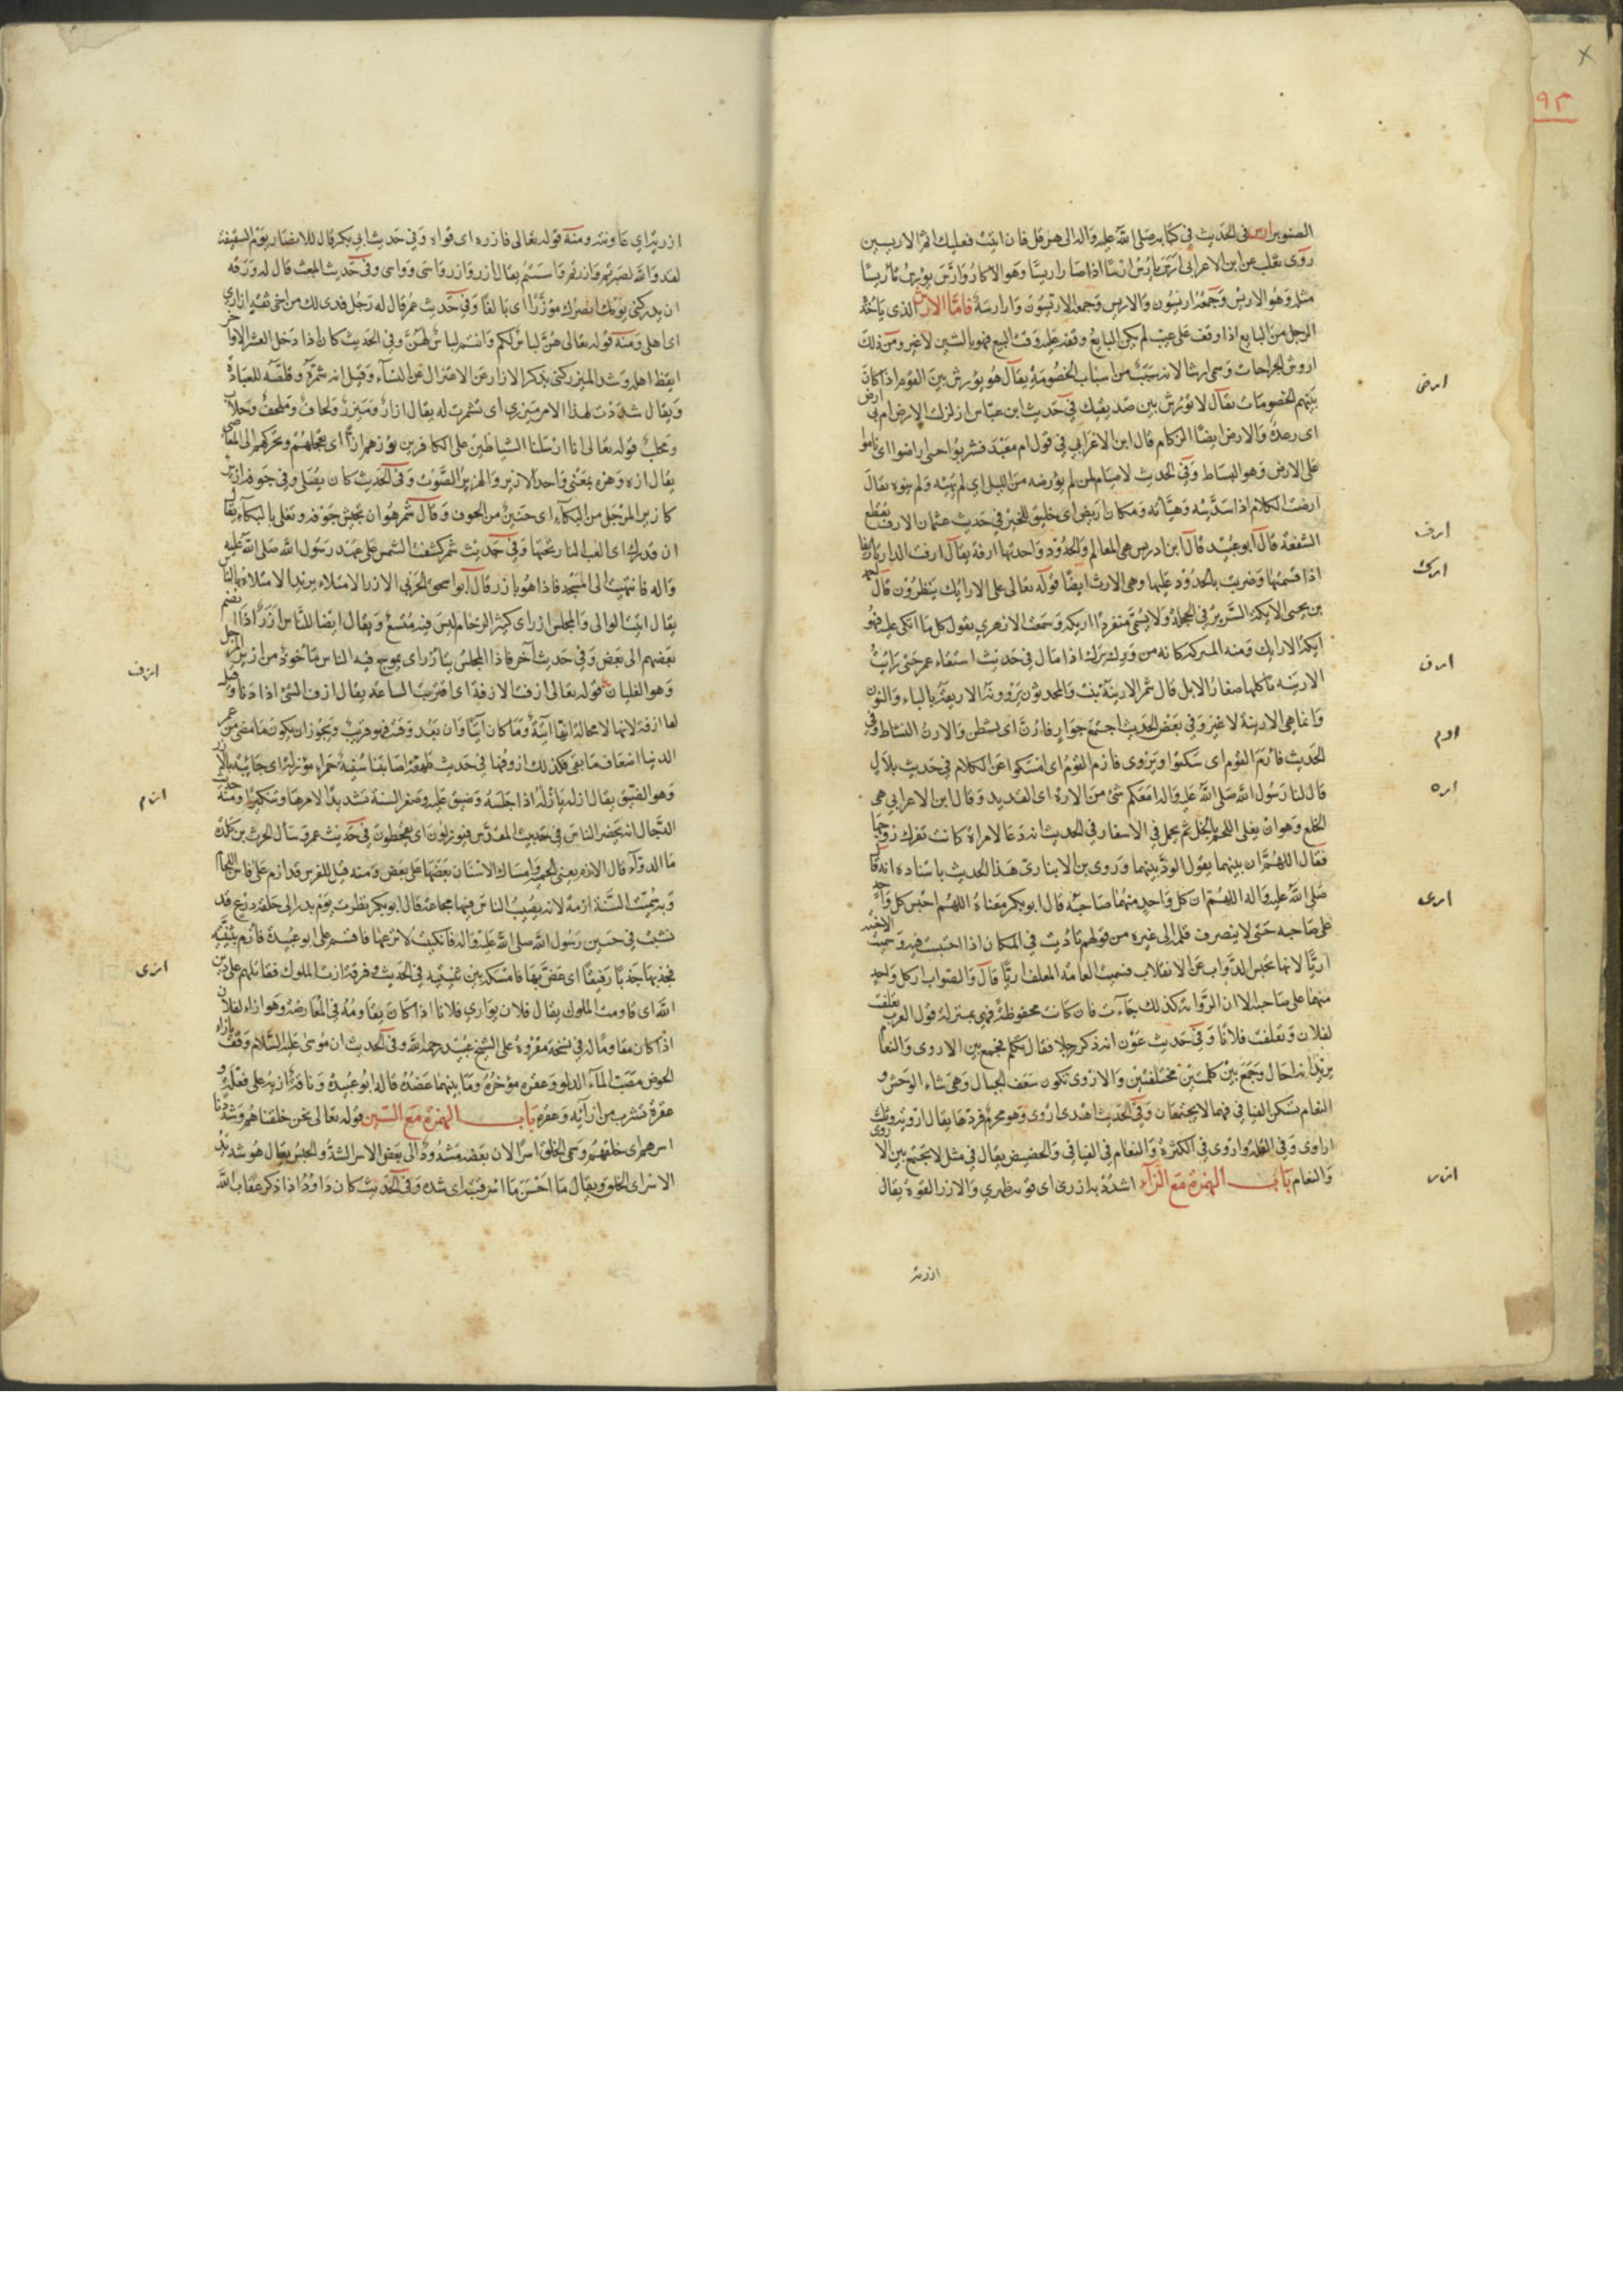 ٩٣
الصنوبر ارس في الحديث في كتابه صلى الله عليه واله الى هرقل فان ابيت فعليك اثم الاريسين
روى ثعلب عن ابن الاعرابي ارس يأرس ارسا اذا صار اريسا وهو الاكار وارس يؤرس تأريسا
مثله وهو الاريس وجمعه اريسون والاريس وجمعه الاريسون وارارسة فاما الارش الذى ياخذه
الرجل من البايع اذا وقف على عيب لم يكن البايع وقفه عليه وقت البيع فهو بالشين لا غير ومن ذلك
اروش الجراحات وسمى ارشا لانه سبب من اسباب الخصومة يقال هو يؤرش بين القوم اذا كان
ارض
بينهم الخصومات يقال لا تؤرش بين صديقيك في حديث ابن عباس ازلزلت الارض ام بي ارض
اى رعدة والارض ايضا الزكام قال ابن الاعرابي في قول ام معبد فشربوا حتى اراضوا اى ناموا
على الارض وهو البساط وفي الحديث لا صيام لمن لم يؤرضه من الليل اى لم يهيئه ولم ينوه يقال
ارضت الكلام اذا سديته وهيأته ومكان اريض اى خليق للخير في حديث عثمان الارف تقطع
ارف
الشفعة قال ابو عبيد قال ابن ادريس هي المعالم والحدود واحدتها ارفة يقال ارفت الدار تاريفا
ارك
اذا قسمتها وضربت بالحدود عليها وهي الارث ايضا قوله تعالى على الارائك ينظرون قال احمد
بن يحيى الاريكة السرير في الحجلة ولا يسمى منفردا اريكة وسمعت الازهري يقول كل ما اتكى عليه فهو
اريكة الارايك ومنه
ارن
الارينة تاكلها صغار الابل قال شمر الارينة نبت والمحدثون يروونه الاربعة بالباء والنون
وانما هي الارينة لا غير وفي بعض الحديث اجتمع جوار فارن اى نشطن والارن النشاط وفي
ارم
الحديث فارم القوم اى سكتوا ويروى فازم القوم اى امسكوا عن الكلام في حديث بلال
اره
قال لنا رسول الله صلى الله عليه واله امعكم شئ من الارة اى القديد وقال ابن الاعرابي هي
الخلع وهو ان يغلى اللحم بالخل ثم يحمل في الاسفار في الحديث انه دعا لامراة كانت تفرك زوجها
فقال اللهم ار بينهما يقول الود بينهما وروى بن الانبارى هذا الحديث باسناده انه قال
ارى
صلى الله عليه واله اللهم ار كل واحد منهما صاحبه قال ابو بكر معناه اللهم احبس كل واحد
على صاحبه حتى لا ينصرف قلبه الى غيره من قولهم تأريت في المكان اذا احتبست فيه وسميت الاخية
اريا لانها تحبس الدواب عن الانفلات فسميت العامة المعلف اريا قال والصواب ار كل واحد
منهما على صاحبه الا ان الرواية كذلك جاءت فان كانت محفوظة فهى بمنزلة قول العرب تعلقت
لفلان وتعلقت فلانا وفي حديث عون انه ذكر رجلا فقال تكلم فجمع بين الاروى والنعام
يريد انه احال وجمع بين كلمتين مختلفتين والاروى تكون بسعف الجبال وهي شاء الوحش و
النعام تسكن الفيافي فهما لا يجتمعان وفي الحديث اهدى اروى وهو محرم فردها يقال اروية وثلث
اراوى وفي القلة واروى في الكثرة والنعام في الفيافي والحضيض يقال في مثل لا تجمع بين الاروى
ازر
والنعام باب الهمزة مع الزاء اشدد به ازرى اى قو به ظهري والازر القوة يقال
ازرته
ازرته اي عاونته ومنه قوله تعالى فازره اى قواه وفي حديث ابي بكر قال للانصار يوم السقيفة
لقد والله نصرتم وازرتم واسيتم يقال ازر وازر واسى وواسى وفي حديث المبعث قال له ورقة
ان يدركنى يومك انصرك نصرا مؤزرا اى بالغا وفي حديث عمر قال له رجل فدى لك من اخى ثقة ازاري
اى اهلي ومنه قوله تعالى هن لباس لكم وانتم لباس لهن وفي الحديث كان اذا دخل العشر الاواخر
ايقظ اهله وشد الميزر كنى بذكر الازار عن الاعتزال عن النساء وقيل انه شمر وقلصه للعبادة
ويقال شددت لهذا الامر ميزري اى تشمرت له يقال ازار وميزر ولحاف وملحف وحلاب
ومحلب قوله تعالى انا ارسلنا الشياطين على الكافرين تؤزهم ازا اى تعجلهم وتحركهم الى المعاصي
يقال ازه وهزه بمعنى واحد الازيز والهزيز الصوت وفي الحديث كان يصلى وفي جوفه ازيز
كازيز المرجل من البكاء اى حنين من الخوف وقال شمر هو ان يجيش جوفه وتغلى بالبكاء يقال
از قدرك اى الهب النار تحتها وفي حديث سمرة كسفت الشمس على عهد رسول الله صلى الله عليه
واله فانتهيت الى المسجد فاذا هو بازز قال ابو اسحق الحربي الازز الامتلاء يريد الامتلاء بالناس
يقال اتيت الوالى والمجلس ازز اى كثير الزحام ليس فيه متسع ويقال ايضا للناس ازز اذا انضم
بعضهم الى بعض وفي حديث آخر فاذا المجلس يتأزز اى يموج فيه الناس مأخوذ من ازيز المرجل
ازف
وهو الغليان قوله تعالى ازفت الازفة اى اقتربت الساعة يقال ازف الشئ اذا دنا وقيل
لها ازفة لانها لا محالة اتية وما كان اتيا وان بعد وقته فهو قريب ويجوز ان يكون ما مضى من عمر
الدنيا اضعاف ما بقى فكذلك ازوفها في حديث طهفة اصابتنا سنية حمراء مؤزلة اى جائية بالازل
ازم
وهو الضيق يقال ازله يأزله اذا حبسه وضيق عليه وصغر السنة تشديدا لامرها وتنكيرا ومنه حديث
الدجال انه يحصر الناس في بيت المقدس فيؤزلون اى يقحطون في حديث عمر وسأل الحرث بن كلدة
ما الدواء قال الازم يعنى الحمية وامساك الاسنان بعضها على بعض ومنه قيل للفرس قد ازم على فاس اللجام
وبه سميت السنة ازمة لانه يصيب الناس فيها مجاعة قال ابو بكر نظرت يوم بدر الى حلقة درع قد
نشبت في جبين رسول الله صلى الله عليه واله فانكببت لانزعها فاقسم علي ابو عبيدة فازم بثنيتيه
ازى
فجذبها جذبا رفيقا اى عض بها فامسكه بين ثنيتيه في الحديث وفرقة ازت الملوك فقاتلهم على دين
الله اى قاومت الملوك يقال فلان يوازي فلانا اذا كان يقاومه في المعارضة وهو ازاء لفلان
اذا كان مقاوما له في نسخة مقروة على الشيخ عبيد رحمه الله وفي الحديث ان موسى عليه السلام وقف بازاء
الحوض مصب الماء الدلو وعقره مؤخره وما بينهما عضده قاله ابو عبيدة وناقة ازية على فعلة و
عقرة تشرب من ازائه وعقره باب الهمزة مع السين قوله تعالى نحن خلقناهم وشددنا
اسرهم اى خلقهم وسمى الخلق اسرا لان بعضه مشدود الى بعض الاسر الشد والحبس يقال هو شديد
الاسر اى الخلق ويقال ما احسن ما اسر قتبه اى شده وفي الحديث كان داود اذا ذكر عقاب الله